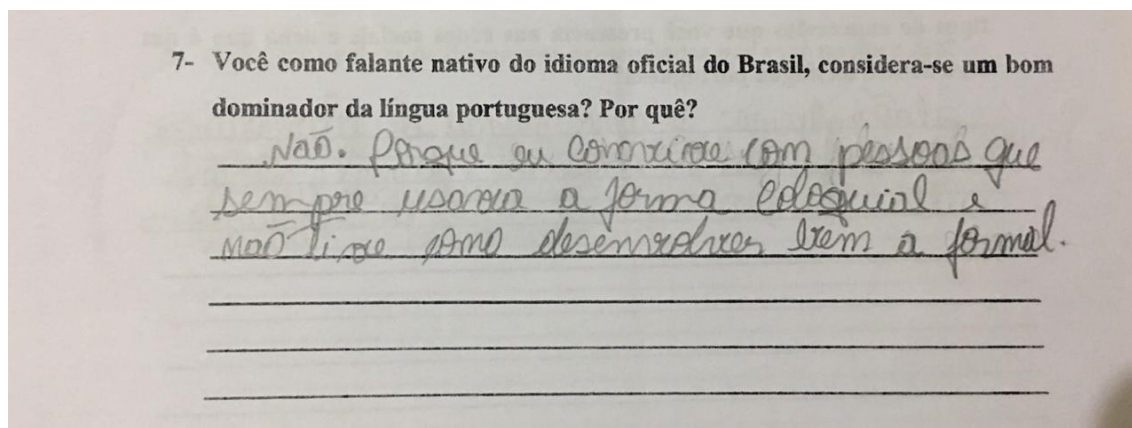 7- Você como falante nativo do idioma oficial do Brasil, considera-se um bom
dominador da língua portuguesa? Por quê?
Não. Porque eu convivi com pessoas que
sempre usava a forma coloquial e
não tive como desenvolver bem a formal.